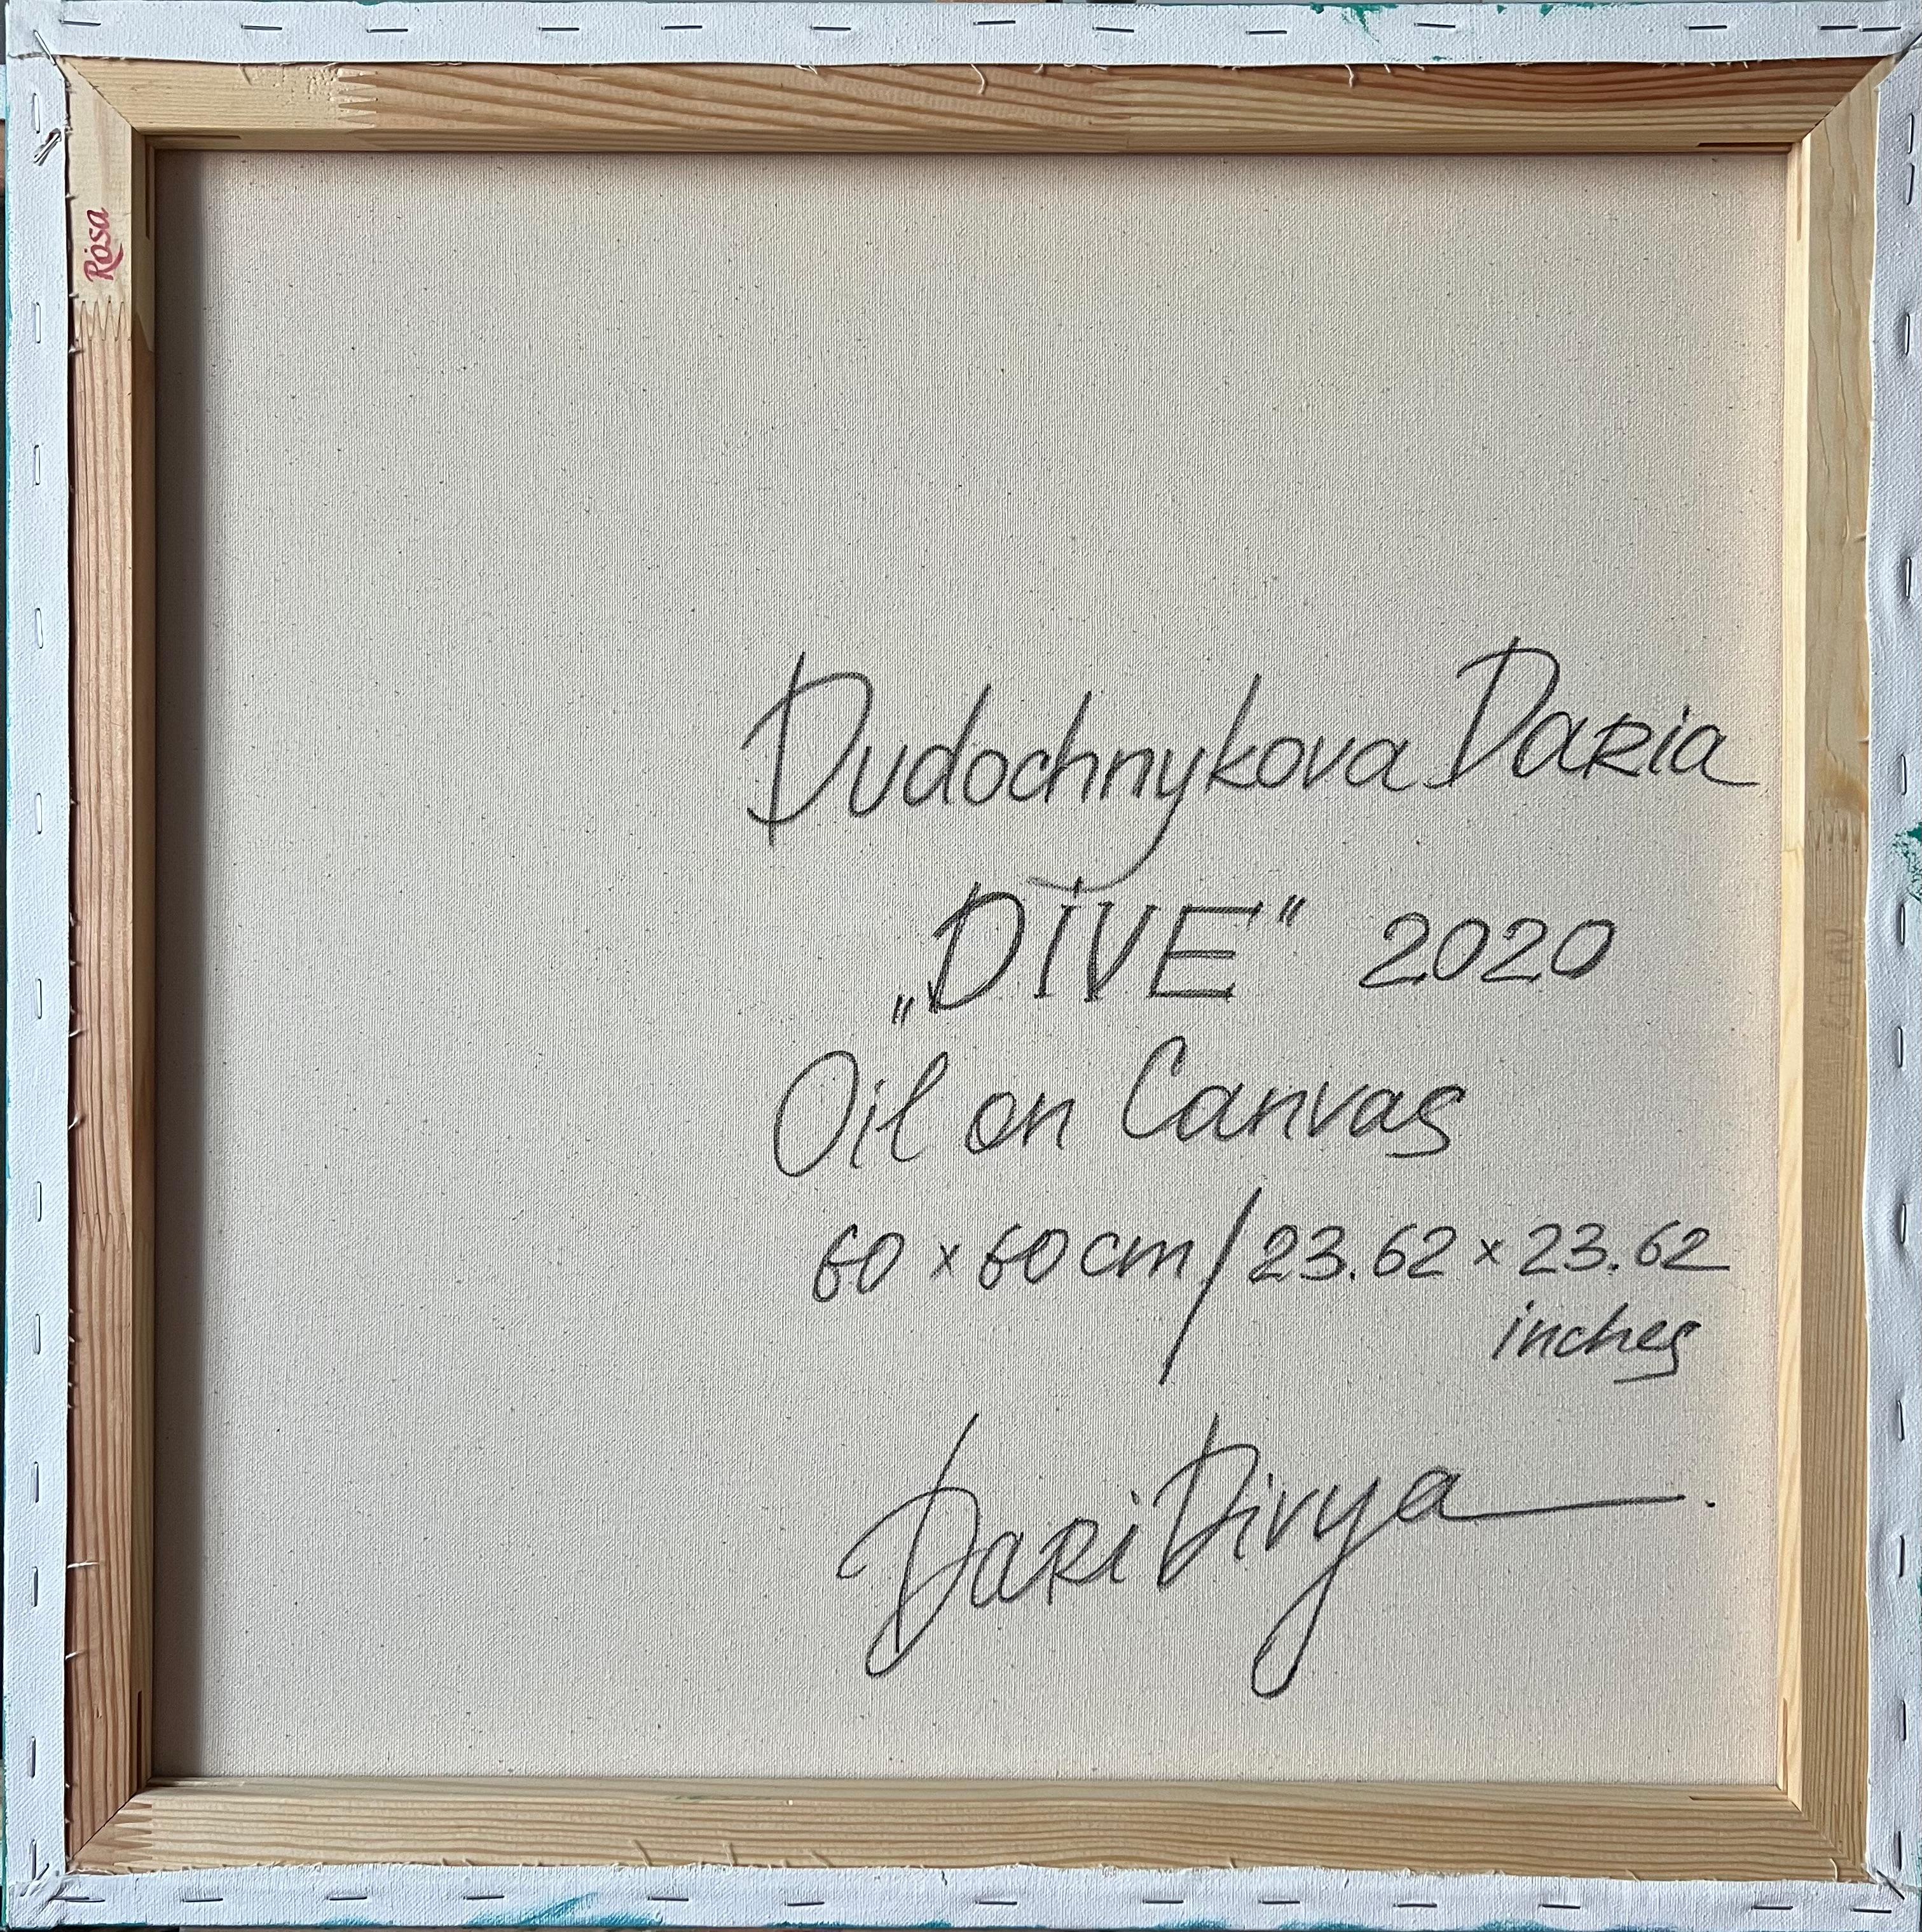 Rosa
Dudochnykova Daria
„DIVE“ 2020
Oil on Canvas
60 × 60 cm / 23.62 × 23.62
inches
Dari Divya